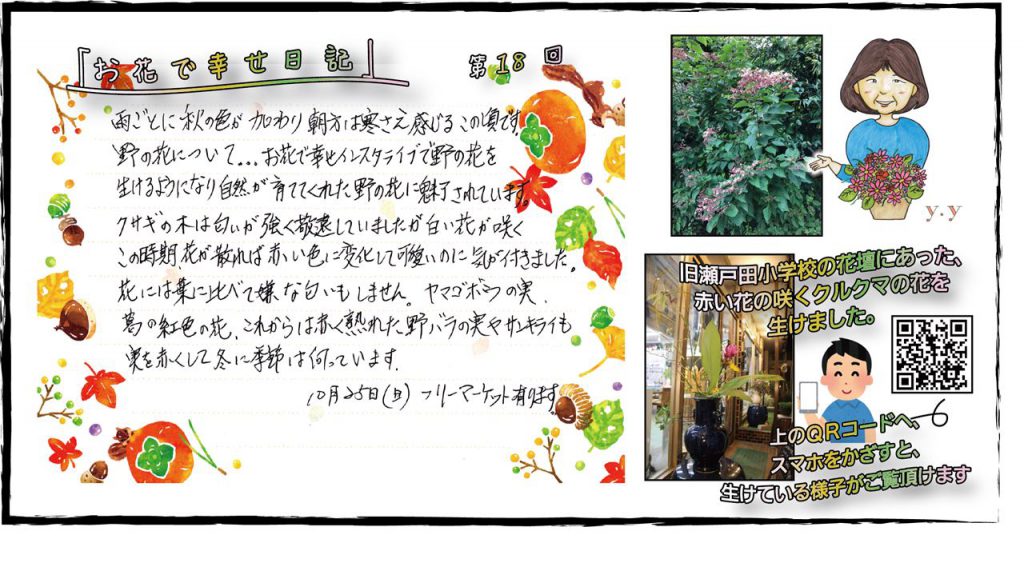 「お花で幸せ日記」
第18回
雨ごとに秋の色が加わり朝方は寒さえ感じるこの頃です
野の花について...お花で幸せインスタライブで野の花を
生けるようになり自然が育ててくれた野の花に魅了されています。
クサギの木は匂いが強く敬遠していましたが白い花が咲く
この時期花が散れば赤い色に変化して可愛いのに気が付きました。
花には葉に比べて嫌な匂いもしません。ヤマゴボウの実、
葛の紅色の花、これからは赤く熟れた野バラの実やサンキライも
実を赤くして冬に季節は向っています.
10月25日(日)フリーマーケット有ります。
y.y
旧瀬戸田小学校の花壇にあった、
赤い花の咲くクルクマの花を
生けました。
上のQRコードへ、
スマホをかざすと、
生けている様子がご覧頂けます